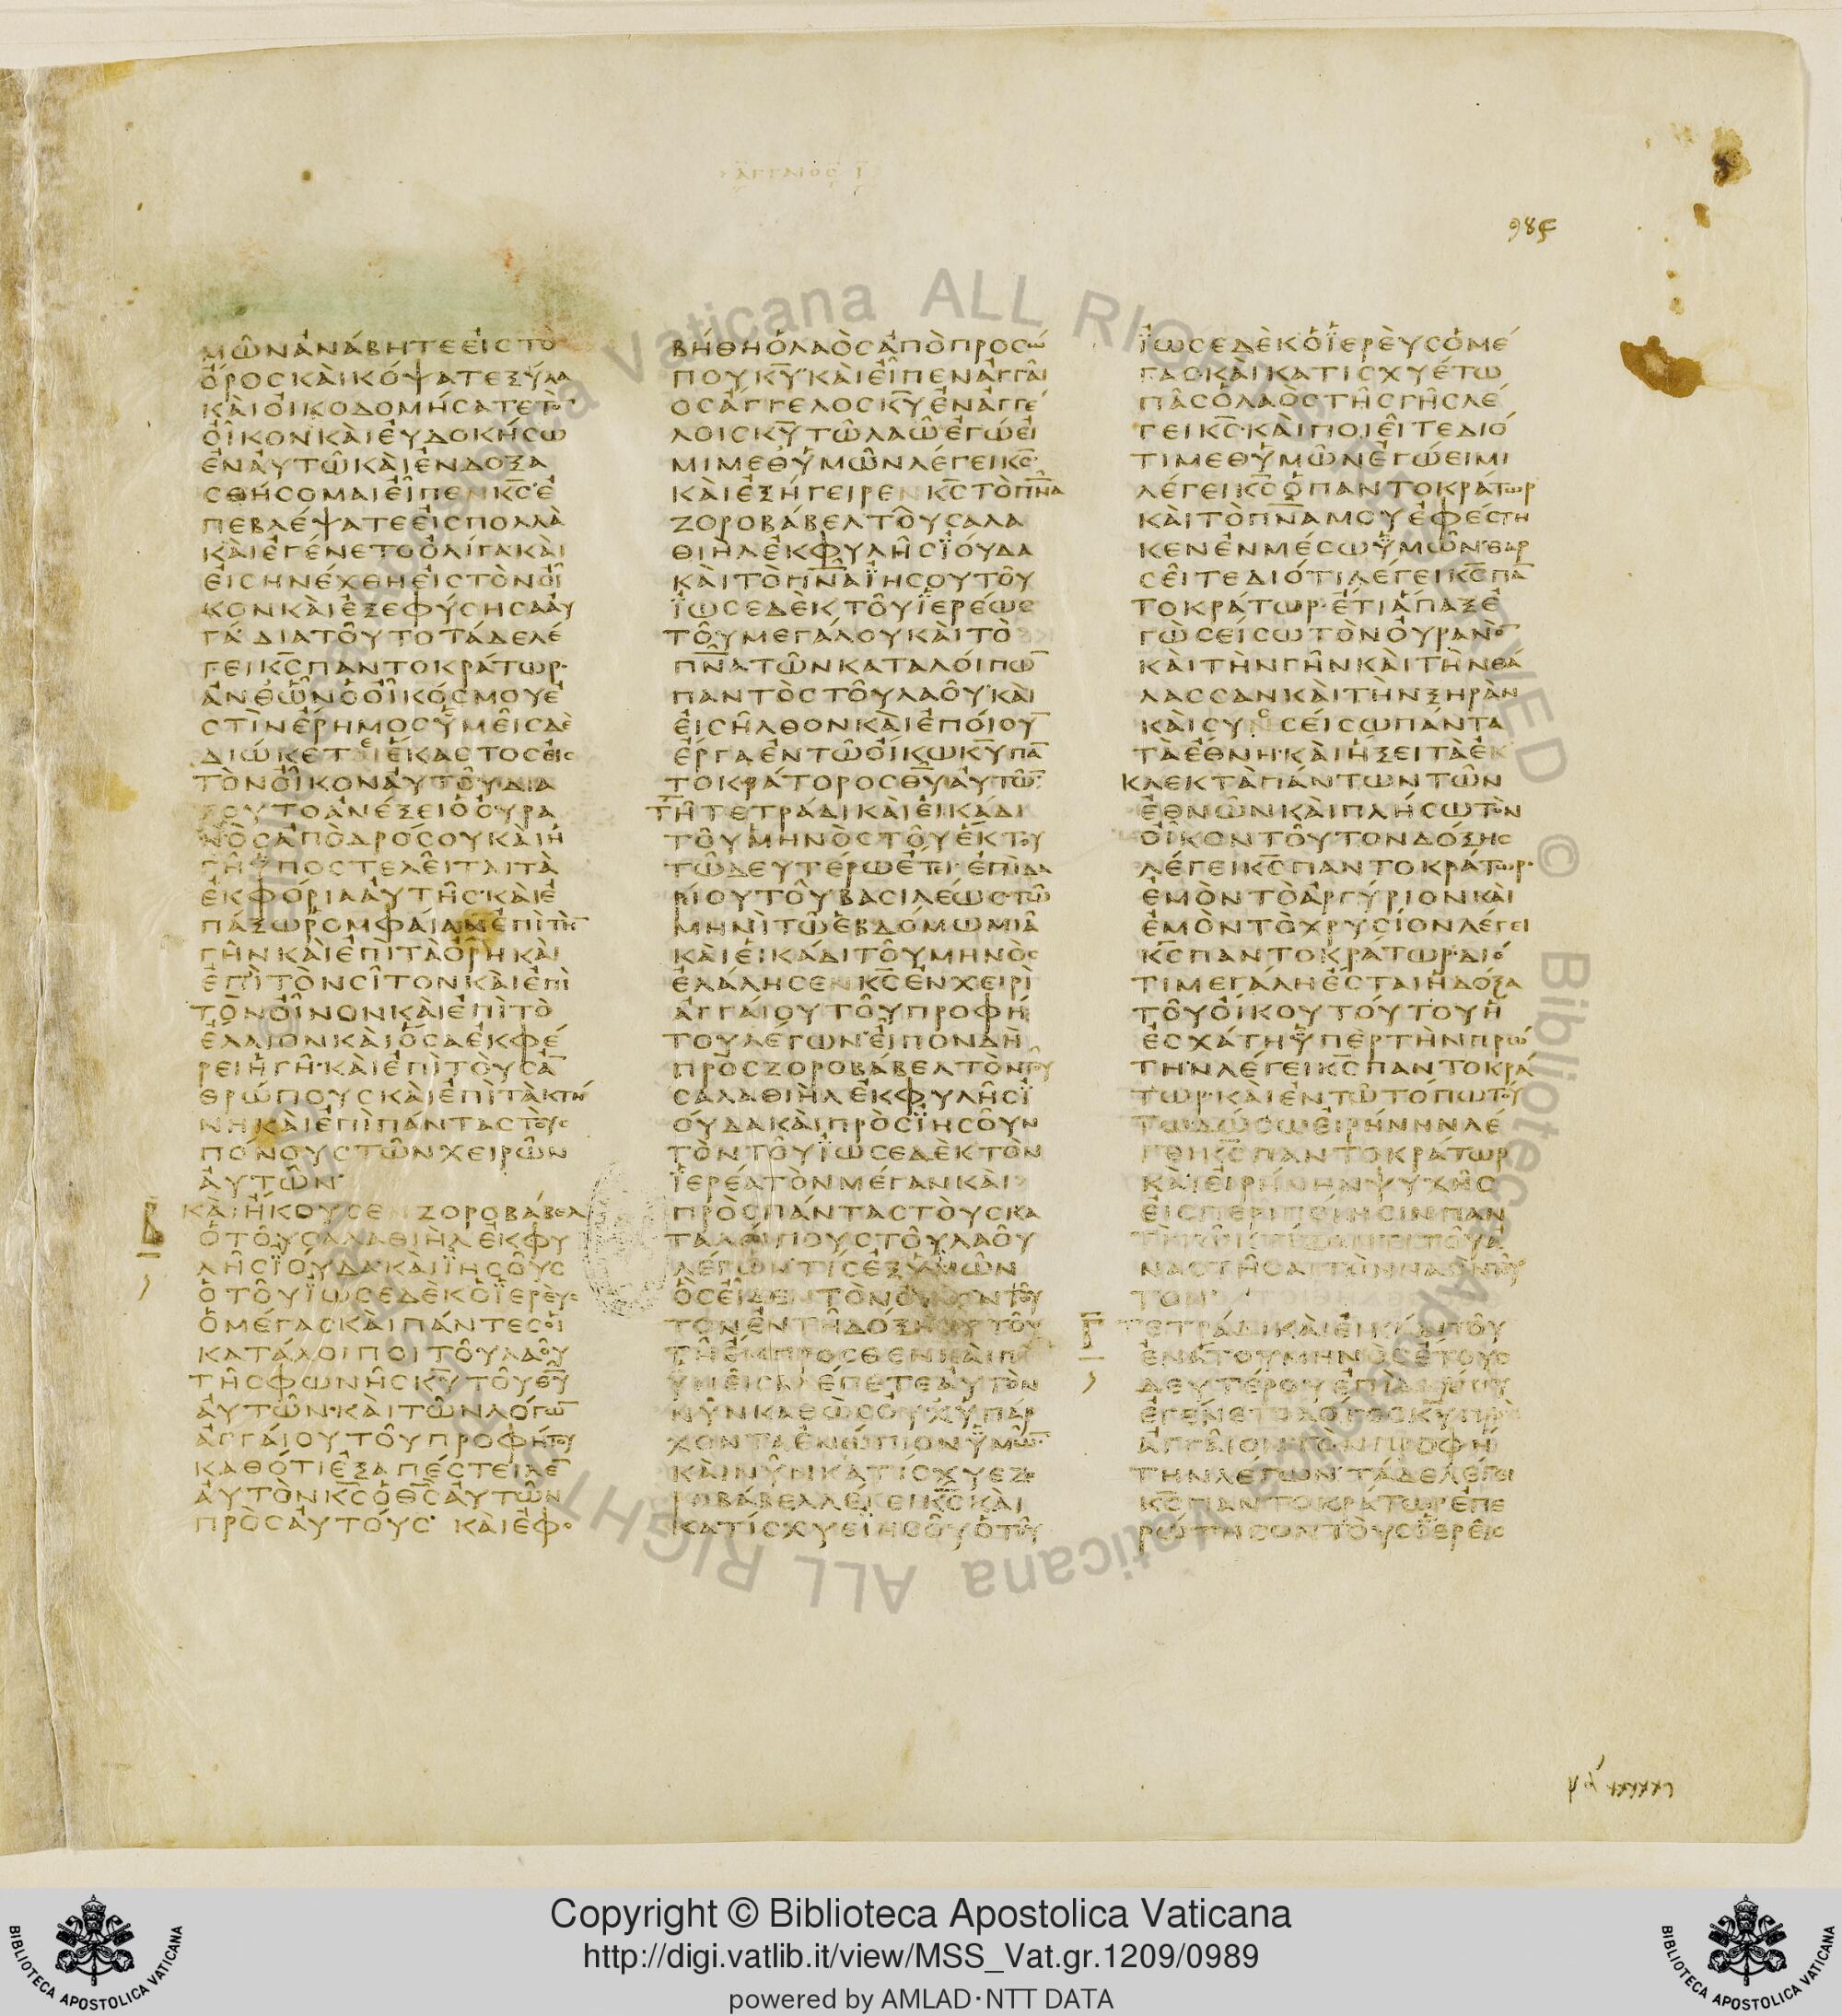 ΑΓΓΑΙΟΣ Ι
985
ΜΩΝΑΝΑΒΗΤΕΕΙΣΤΟ
ΟΡΟΣΚΑΙΚΟΨΑΤΕΞΥΛΑ
ΚΑΙΟΙΚΟΔΟΜΗΣΑΤΕΤΟ̅
ΟΙΚΟΝΚΑΙΕΥΔΟΚΗΣΩ
ΕΝΑΥΤΩΚΑΙΕΝΔΟΞΑ
ΣΘΗΣΟΜΑΙΕΙΠΕΝΚ̅Σ̅Ε
ΠΕΒΛΕΨΑΤΕΕΙΣΠΟΛΛΑ
ΚΑΙΕΓΕΝΕΤΟΟΛΙΓΑΚΑΙ
ΕΙΣΗΝΕΧΘΗΕΙΣΤΟΝΟΙ
ΚΟΝΚΑΙΕΞΕΦΥΣΗΣΑΑΥ
ΓΑ·ΔΙΑΤΟΥΤΟΤΑΔΕΛΕ
ΓΕΙΚ̅Σ̅ΠΑΝΤΟΚΡΑΤΩΡ·
ΑΝΘΩΝΟΟΙΚΟΣΜΟΥΕ
ΣΤΙΝΕΡΗΜΟΣΥΜΕΙΣΔΕ
ΔΙΩΚΕΤΕΕΚΑΣΤΟΣΕΙΣ
ΤΟΝΟΙΚΟΝΑΥΤΟΥ·ΔΙΑ
ΤΟΥΤΟΑΝΕΞΕΙΟΟΥΡΑ
ΝΟΣΑΠΟΔΡΟΣΟΥΚΑΙΗ
ΓΗΥΠΟΣΤΕΛΕΙΤΑΙΤΑ
ΕΚΦΟΡΙΑΑΥΤΗΣ·ΚΑΙΕ
ΠΑΞΩΡΟΜΦΑΙΑΝΕΠΙΤΗ̅
ΓΗΝΚΑΙΕΠΙΤΑΟΡΗΚΑΙ
ΕΠΙΤΟΝΣΙΤΟΝΚΑΙΕΠΙ
ΤΟΝΟΙΝΟΝΚΑΙΕΠΙΤΟ
ΕΛΑΙΟΝΚΑΙΟΣΑΕΚΦΕ
ΡΕΙΗΓΗ·ΚΑΙΕΠΙΤΟΥΣΑ̅
ΘΡΩΠΟΥΣΚΑΙΕΠΙΤΑΚΤΗ
ΝΗΚΑΙΕΠΙΠΑΝΤΑΣΤΟΥΣ
ΠΟΝΟΥΣΤΩΝΧΕΙΡΩΝ
ΑΥΤΩΝ·
Β ΚΑΙΗΚΟΥΣΕΝΖΟΡΟΒΑΒΕΛ
ΟΤΟΥΣΑΛΑΘΙΗΛΕΚΦΥ
ΛΗΣΪΟΥΔΑ·ΚΑΙΪΗΣΟΥΣ
ΟΤΟΥΪΩΣΕΔΕΚΟΪΕΡΕΥΣ
ΟΜΕΓΑΣΚΑΙΠΑΝΤΕΣΟΙ
ΚΑΤΑΛΟΙΠΟΙΤΟΥΛΑΟΥ
ΤΗΣΦΩΝΗΣΚ̅Υ̅ΤΟΥΘ̅Υ̅
ΑΥΤΩΝ·ΚΑΙΤΩΝΛΟΓΩ̅
ΑΓΓΑΙΟΥΤΟΥΠΡΟΦΗΤΟΥ
ΚΑΘΟΤΙΕΞΑΠΕΣΤΕΙΛΕ̅
ΑΥΤΟΝΚ̅Σ̅ΟΘ̅Σ̅ΑΥΤΩΝ
ΠΡΟΣΑΥΤΟΥΣ· ΚΑΙΕΦΟ
ΒΗΘΗΟΛΑΟΣΑΠΟΠΡΟΣΩ
ΠΟΥΚ̅Υ̅·ΚΑΙΕΙΠΕΝΑΓΓΑΙ
ΟΣΑΓΓΕΛΟΣΚ̅Υ̅ΕΝΑΓΓΕ
ΛΟΙΣΚ̅Υ̅ΤΩΛΑΩΕΓΩΕΙ
ΜΙΜΕΘΥΜΩΝΛΕΓΕΙΚ̅Σ̅·
ΚΑΙΕΞΗΓΕΙΡΕΝΚ̅Σ̅ΤΟΠ̅Ν̅Α̅
ΖΟΡΟΒΑΒΕΛΤΟΥΣΑΛΑ
ΘΙΗΛΕΚΦΥΛΗΣΪΟΥΔΑ
ΚΑΙΤΟΠ̅Ν̅Α̅ΪΗΣΟΥΤΟΥ
ΪΩΣΕΔΕΚΤΟΥΪΕΡΕΩΣ
ΤΟΥΜΕΓΑΛΟΥΚΑΙΤΟ
Π̅Ν̅Α̅ΤΩΝΚΑΤΑΛΟΙΠΩ̅
ΠΑΝΤΟΣΤΟΥΛΑΟΥ·ΚΑΙ
ΕΙΣΗΛΘΟΝΚΑΙΕΠΟΙΟΥ̅
ΕΡΓΑΕΝΤΩΟΙΚΩΚ̅Υ̅ΠΑ̅
ΤΟΚΡΑΤΟΡΟΣΘ̅Υ̅ΑΥΤΩ̅·
ΤΗΤΕΤΡΑΔΙΚΑΙΕΙΚΑΔΙ
ΤΟΥΜΗΝΟΣΤΟΥΕΚΤΟΥ
ΤΩΔΕΥΤΕΡΩΕΤΕΙ·ΕΠΙΔΑ
ΡΙΟΥΤΟΥΒΑΣΙΛΕΩΣ·ΤΩ
ΜΗΝΙΤΩΕΒΔΟΜΩΜΙΑ
ΚΑΙΕΙΚΑΔΙΤΟΥΜΗΝΟΣ
ΕΛΑΛΗΣΕΝΚ̅Σ̅ΕΝΧΕΙΡΙ
ΑΓΓΑΙΟΥΤΟΥΠΡΟΦΗ
ΤΟΥΛΕΓΩΝ·ΕΙΠΟΝΔΗ
ΠΡΟΣΖΟΡΟΒΑΒΕΛΤΟΝΤΟΥ
ΣΑΛΑΘΙΗΛΕΚΦΥΛΗΣΪ
ΟΥΔΑΚΑΙΠΡΟΣΪΗΣΟΥΝ
ΤΟΝΤΟΥΪΩΣΕΔΕΚΤΟΝ
ΪΕΡΕΑΤΟΝΜΕΓΑΝΚΑΙ
ΠΡΟΣΠΑΝΤΑΣΤΟΥΣΚΑ
ΤΑΛΟΙΠΟΥΣΤΟΥΛΑΟΥ
ΛΕΓΩΝ·ΤΙΣΕΞΥΜΩΝ
ΟΣΕΙΔΕΝΤΟΝΟΙΚΟΝΤΟΥ
ΤΟΝΕΝΤΗΔΟΞΗΑΥΤΟΥ
ΤΗΕΜΠΡΟΣΘΕΝΚΑΙΠΩ
ΥΜΕΙΣΒΛΕΠΕΤΕΑΥΤΟΝ
ΝΥΝΚΑΘΩΣΟΥΧΥΠΑΡ
ΧΟΝΤΑΕΝΩΠΙΟΝΥΜΩ̅·
ΚΑΙΝΥΝΚΑΤΙΣΧΥΕΖΟ
ΡΟΒΑΒΕΛΛΕΓΕΙΚ̅Σ̅ΚΑΙ
ΚΑΤΙΣΧΥΕΪΗΣΟΥΟΤΟΥ
ΪΩΣΕΔΕΚΟΪΕΡΕΥΣΟΜΕ
ΓΑΣ·ΚΑΙΚΑΤΙΣΧΥΕΤΩ
ΠΑΣΟΛΑΟΣΤΗΣΓΗΣΛΕ
ΓΕΙΚ̅Σ̅·ΚΑΙΠΟΙΕΙΤΕΔΙΟ
ΤΙΜΕΘΥΜΩΝΕΓΩΕΙΜΙ
ΛΕΓΕΙΚ̅Σ̅ΟΠΑΝΤΟΚΡΑΤΩΡ
ΚΑΙΤΟΠ̅Ν̅Α̅ΜΟΥΕΦΕΣΤΗ
ΚΕΝΕΝΜΕΣΩΥΜΩΝ·ΘΑΡ
ΣΕΙΤΕΔΙΟΤΙΛΕΓΕΙΚ̅Σ̅ΠΑ̅
ΤΟΚΡΑΤΩΡ·ΕΤΙΑΠΑΞΕ
ΓΩΣΕΙΣΩΤΟΝΟΥΡΑΝΟ̅
ΚΑΙΤΗΝΓΗΝΚΑΙΤΗΝΘΑ
ΛΑΣΣΑΝΚΑΙΤΗΝΞΗΡΑΝ
ΚΑΙΣΥΝΣΕΙΣΩΠΑΝΤΑ
ΤΑΕΘΝΗ·ΚΑΙΗΞΕΙΤΑΕΚ
ΚΛΕΚΤΑΠΑΝΤΩΝΤΩΝ
ΕΘΝΩΝΚΑΙΠΛΗΣΩΤΟΝ
ΟΙΚΟΝΤΟΥΤΟΝΔΟΞΗΣ
ΛΕΓΕΙΚ̅Σ̅ΠΑΝΤΟΚΡΑΤΩΡ·
ΕΜΟΝΤΟΑΡΓΥΡΙΟΝΚΑΙ
ΕΜΟΝΤΟΧΡΥΣΙΟΝΛΕΓΕΙ
Κ̅Σ̅ΠΑΝΤΟΚΡΑΤΩΡ·ΔΙΟ
ΤΙΜΕΓΑΛΗΕΣΤΑΙΗΔΟΞΑ
ΤΟΥΟΙΚΟΥΤΟΥΤΟΥΗ
ΕΣΧΑΤΗΥΠΕΡΤΗΝΠΡΩ
ΤΗΝ·ΛΕΓΕΙΚ̅Σ̅ΠΑΝΤΟΚΡΑ
ΤΩΡ·ΚΑΙΕΝΤΩΤΟΠΩΤΟΥ
ΤΩΔΩΣΩΕΙΡΗΝΗΝΛΕ
ΓΕΙΚ̅Σ̅ΠΑΝΤΟΚΡΑΤΩΡ
ΚΑΙΕΙΡΗΝΗΝΨΥΧΗΣ
ΕΙΣΠΕΡΙΠΟΙΗΣΙΝΠΑΝ
ΝΑΣΤΗΣΑΙΤΟΝΝΑΟΝΤΟΥ
ΤΟΝ
Γ ΤΕΤΡΑΔΙΚΑΙΕΙΚΑΔΙΤΟΥ
ΕΝΑΤΟΥΜΗΝΟΣΕΤΟΥΣ
ΔΕΥΤΕΡΟΥΕΠΙΔΑΡΕΙΟΥ
ΕΓΕΝΕΤΟΛΟΓΟΣΚ̅Υ̅ΠΡΟΣ
ΑΓΓΑΙΟΝΤΟΝΠΡΟΦΗ
ΤΗΝΛΕΓΩΝ·ΤΑΔΕΛΕΓΕΙ
Κ̅Σ̅ΠΑΝΤΟΚΡΑΤΩΡΕΠΕ
ΡΩΤΗΣΟΝΤΟΥΣΪΕΡΕΙΣ
Copyright © Biblioteca Apostolica Vaticana
http://digi.vatlib.it/view/MSS_Vat.gr.1209/0989
powered by AMLAD·NTT DATA
BIBLIOTECA APOSTOLICA VATICANA
BIBLIOTECA APOSTOLICA VATICANA